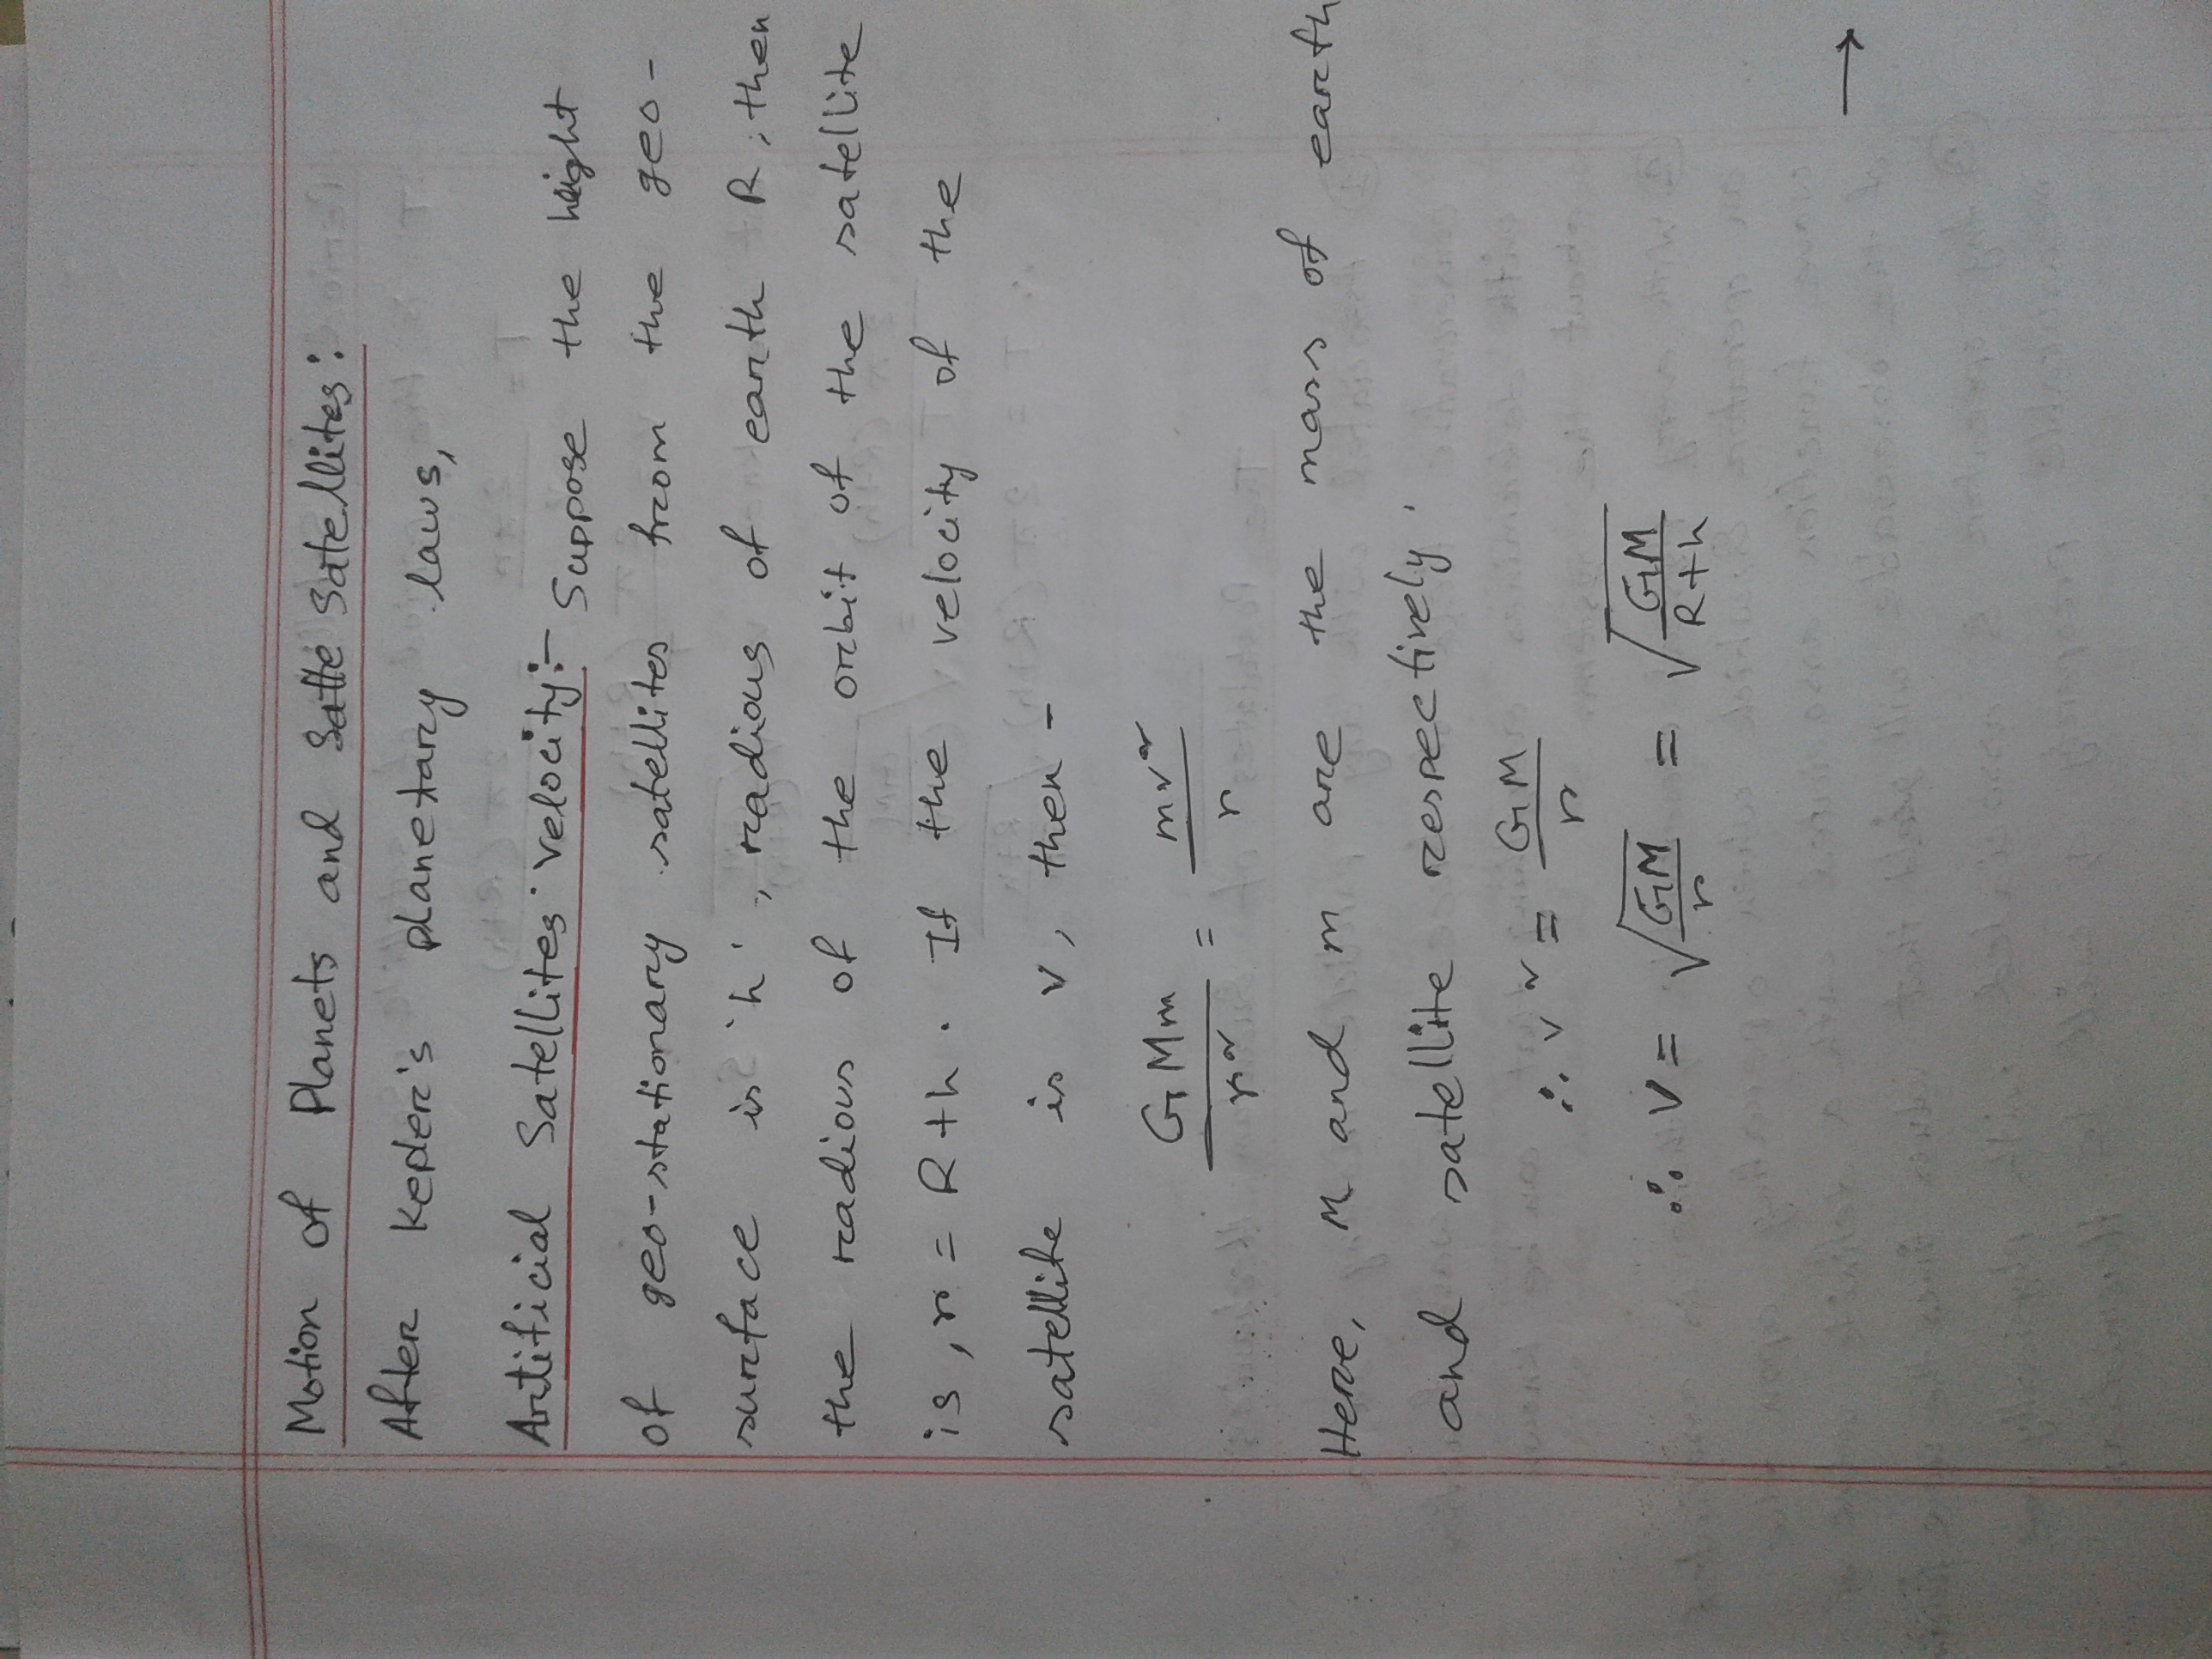 Motion of Planets and Satte Satellites:
After Kepler's planetary laws,
Artificial Satellites' velocity:- Suppose the height
of geo-stationary satellites from the geo-
surface is 'h', radious of earth R, then
the radious of the orbit of the satellite
is, r = R+h. If the velocity of the
satellite is v, then -
GMm/r² = mv²/r
Here, M and m are the mass of earth
and satellite respectively.
∴ v² = GM/r
∴ v = √(GM/r) = √(GM/(R+h))
→